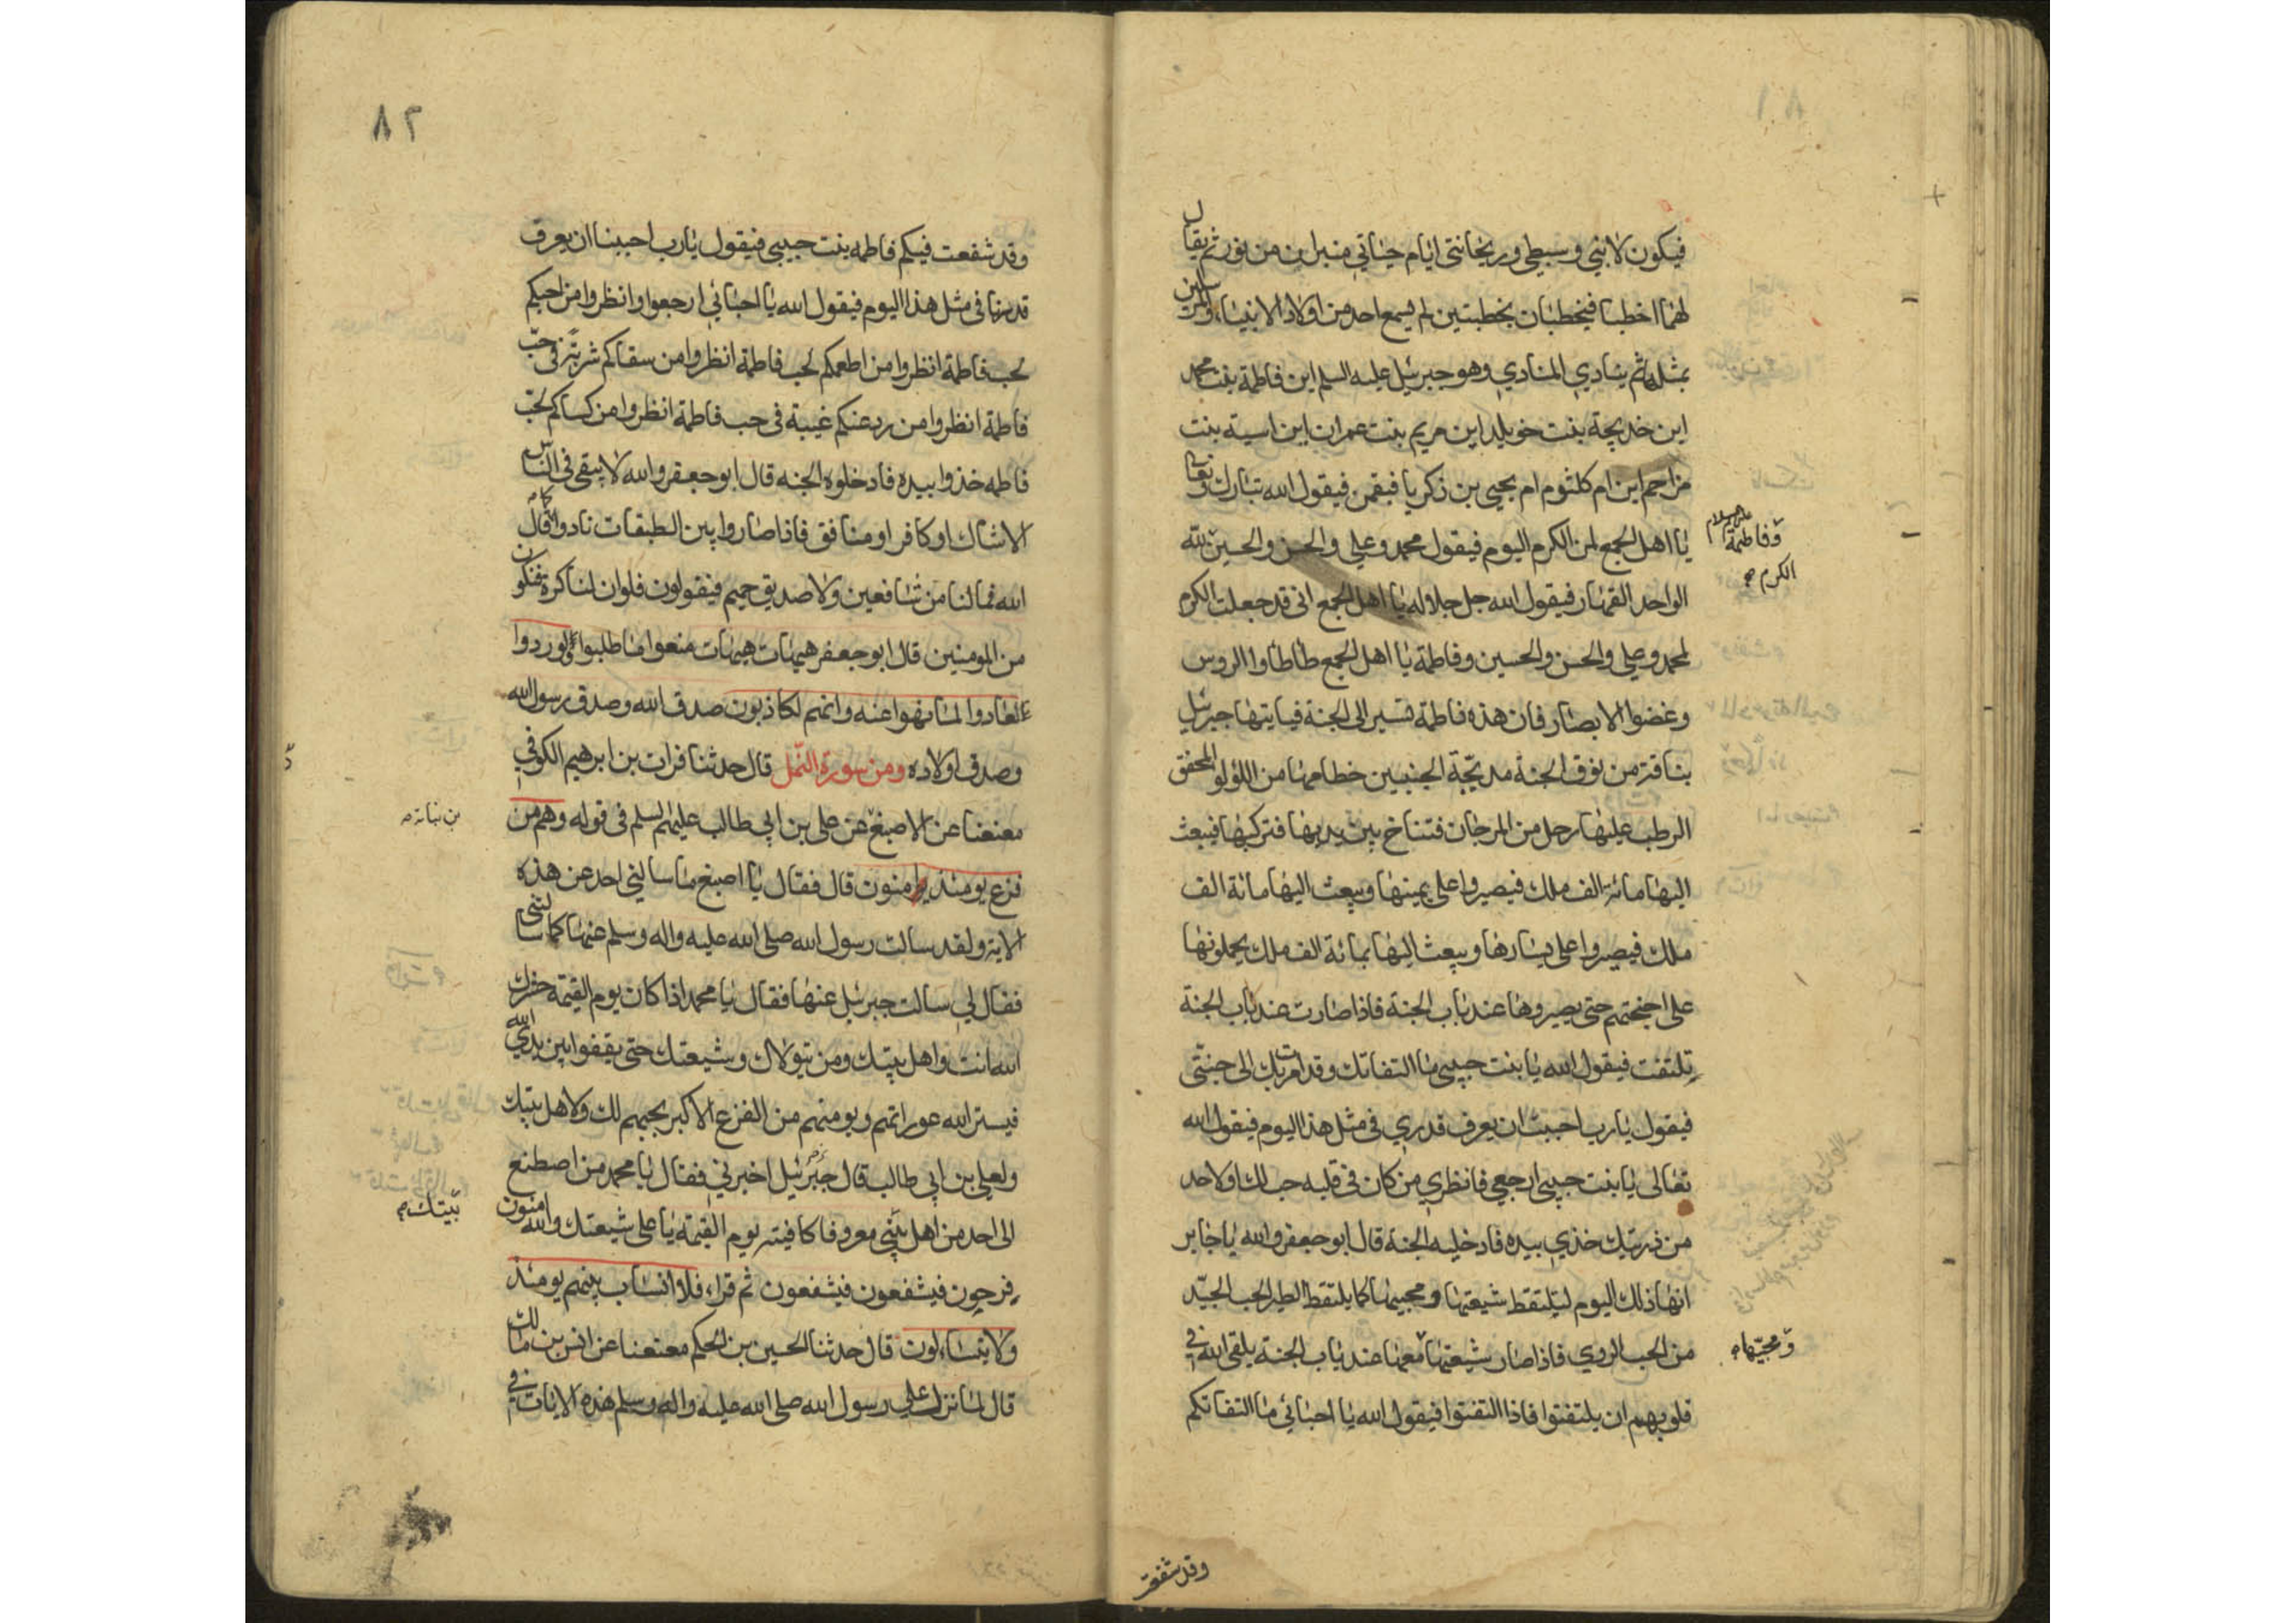 ٨١
فيكون لابني وسبطي وريحانتي ايام حياتي منبران من نور ثم يقال
لهما اخطبا فيخطبان بخطبتين لم يسمع احد من اولاد الانبياء والمرسلين
بمثلها ثم ينادي المنادي وهو جبرئيل عليه السلم اين فاطمة بنت محمد
اين خديجة بنت خويلد اين مريم بنت عمران اين اسية بنت
مزاحم اين ام كلثوم ام يحيى بن زكريا فيقمن فيقول الله تبارك وتعا
يا اهل الجمع لمن الكرم اليوم فيقول محمد وعلي والحسن والحسين لله
وفاطمة عليهم السلام
الواحد القهار فيقول الله جل جلاله يا اهل الجمع انى قد جعلت الكرم
الكرم
لمحمد وعلي والحسن والحسين وفاطمة يا اهل الجمع طاطاوا الروس
وغضوا الابصار فان هذه فاطمة تسير الى الجنة فياتيها جبرئيل
بناقة من نوق الجنة مدبجة الجنبين خطامها من اللؤلو المخفق
الرطب عليها رحل من المرجان فتناخ بين يديها فتركبها فيبعث
اليها مائة الف ملك فيصيروا على يمينها ويبعث اليها مائة الف
ملك فيصيروا على يسارها ويبعث اليها بمائة الف ملك يحملونها
على اجنحتهم حتى يصيروها عند باب الجنة فاذا صارت عند باب الجنة
تلتفت فيقول الله يا بنت حبيبي ما التفاتك وقد امرت بك الى جنتي
فيقول يا رب احببت ان يعرف قدري في مثل هذا اليوم فيقول الله
تعالى يا بنت حبيبي ارجعي فانظري من كان في قلبه حب لك او لاحد
من ذريتك خذي بيده فادخليه الجنة قال ابو جعفر والله يا جابر
انها ذلك اليوم ليلتقط شيعتها ومحبيها كما يلتقط الطير الحب الجيد
من الحب الردي فاذا صار شيعتها معها عند باب الجنة يلقى الله في
ومحبيها
قلوبهم ان يلتفتوا فاذا التفتوا فيقول الله يا احبائي ما التفاتكم
وقد شفعت
٨٢
وقد شفعت فيكم فاطمه بنت حبيبي فيقول يا رب احببنا ان يعرف
قدرنا في مثل هذا اليوم فيقول الله يا احبائي ارجعوا وانظروا من احبكم
لحب فاطمة انظروا من اطعمكم لحب فاطمة انظروا من سقاكم شربة في حب
فاطمة انظروا من رد عنكم غيبة في حب فاطمة انظروا من كساكم لحب
فاطمه خذوا بيده فادخلوه الجنه قال ابو جعفر والله لا يبقى في الناس
الا شاك او كافر او منافق فاذا صاروا بين الطبقات نادوا كما قال
الله فما لنا من شافعين ولا صديق حميم فيقولون فلو ان لنا كرة فنكون
من المومنين قال ابو جعفر هيهات هيهات منعوا ما طلبوا ولو ردوا
لعادوا لما نهوا عنه وانهم لكاذبون صدق الله وصدق رسول الله
وصدق اولاده ومن سورة النمل قال حدثنا فرات بن ابرهيم الكوفي
معنعنا عن الاصبغ عن على بن ابي طالب عليهم السلم في قوله وهم من
بن نباته
فزع يومئذ امنون قال فقال يا اصبغ ما سالني احد عن هذه
الاية ولقد سالت رسول الله صلى الله عليه واله وسلم عنها كما سالتني
فقال لي سالت جبرئيل عنها فقال يا محمد اذا كان يوم القيمة حشرك
الله انت واهل بيتك ومن يتولاك وشيعتك حتى يقفوا بين يدي الله
فيستر الله عوراتهم ويومنهم من الفزع الاكبر بحبهم لك ولاهل بيتك
ولعلي بن ابي طالب قال جبرئيل اخبرني فقال يا محمد من اصطنع
الى احد من اهل بيتي معروفا كافيته يوم القيمة يا على شيعتك والله امنون
بيتك
فرحون فيشفعون فيشفعون ثم قراء فلا انساب بينهم يومئذ
ولا يتساءلون قال حدثنا الحسين بن الحكم معنعنا عن انس بن مالك
قال لما نزلت على رسول الله صلى الله عليه واله وسلم هذه الايات في